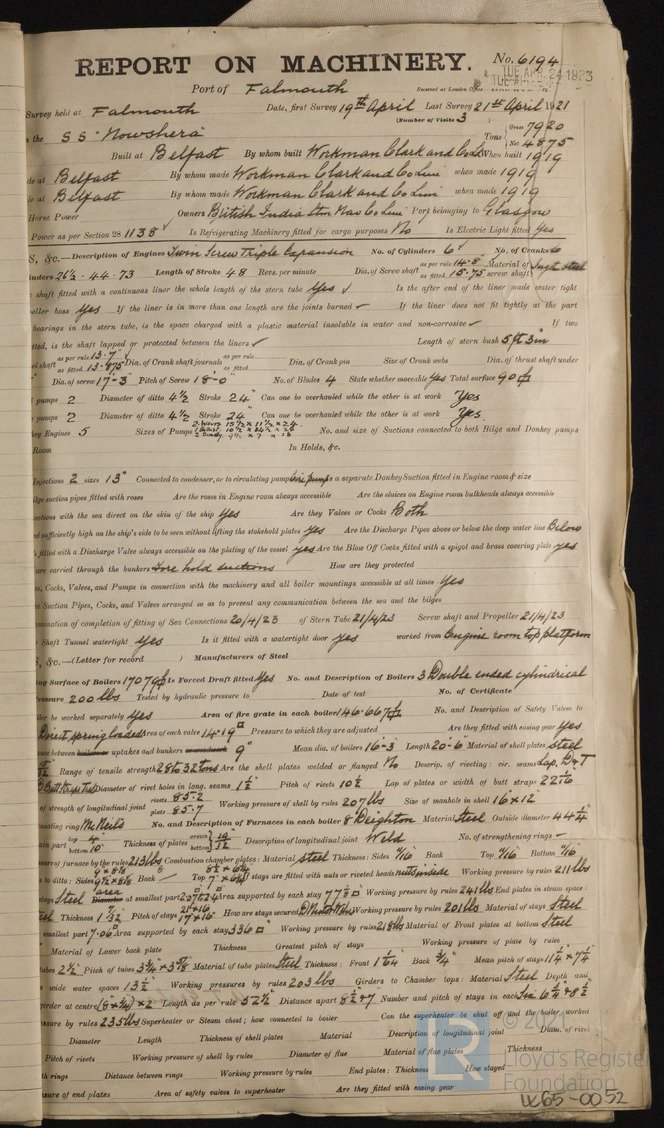 REPORT ON MACHINERY. No. 6194
TUE. APR. 24 1923
Port of Falmouth Received at London Office
Survey held at Falmouth Date, first Survey 19th April Last Survey 21st April 1921
(Number of Visits 3)
the SS "Nowshera" Tons Gross 7920 Net 4875
Built at Belfast By whom built Workman Clark and Co Ld When built 1919
de at Belfast By whom made Workman Clark and Co Lim when made 1919
le at Belfast By whom made Workman Clark and Co Lim when made 1919
Horse Power Owners British India Stm Nav Co Lim Port belonging to Glasgow
Power as per Section 28 1138 Is Refrigerating Machinery fitted for cargo purposes No Is Electric Light fitted Yes
S, &c.—Description of Engines Twin Screw Triple Expansion No. of Cylinders 6 No. of Cranks 6
inders 26½ · 44 · 73 Length of Stroke 48 Revs. per minute Dia. of Screw shaft as per rule 14.8 as fitted 15.75 Material of screw shaft Ingt steel
shaft fitted with a continuous liner the whole length of the stern tube Yes Is the after end of the liner made water tight
eller boss Yes If the liner is in more than one length are the joints burned If the liner does not fit tightly at the part
bearings in the stern tube, is the space charged with a plastic material insoluble in water and non-corrosive If two
tted, is the shaft lapped or protected between the liners Length of stern bush 5ft 3in
el shaft as per rule 13.7 as fitted 13.875 Dia. of Crank shaft journals as per rule as fitted Dia. of Crank pin Size of Crank webs Dia. of thrust shaft under
Dia. of screw 17'-3" Pitch of Screw 18'-0" No. of Blades 4 State whether moveable Yes Total surface 90
pumps 2 Diameter of ditto 4½ Stroke 24" Can one be overhauled while the other is at work Yes
pumps 2 Diameter of ditto 4½ Stroke 24" Can one be overhauled while the other is at work Yes
key Engines 5 Sizes of Pumps No. and size of Suctions connected to both Bilge and Donkey pumps
Room In Holds, &c.
Injections 2 sizes 13" Connected to condenser, or to circulating pump Circ pump Is a separate Donkey Suction fitted in Engine room & size
ilge suction pipes fitted with roses Are the roses in Engine room always accessible Are the sluices on Engine room bulkheads always accessible
ections with the sea direct on the skin of the ship Yes Are they Valves or Cocks Both
d sufficiently high on the ship's side to be seen without lifting the stokehold plates Yes Are the Discharge Pipes above or below the deep water line Below
fitted with a Discharge Valve always accessible on the plating of the vessel Yes Are the Blow Off Cocks fitted with a spigot and brass covering plate Yes
are carried through the bunkers Fore hold suctions How are they protected
es, Cocks, Valves, and Pumps in connection with the machinery and all boiler mountings accessible at all times Yes
e Suction Pipes, Cocks, and Valves arranged so as to prevent any communication between the sea and the bilges
mination of completion of fitting of Sea Connections 20/4/23 of Stern Tube 21/4/23 Screw shaft and Propeller 21/4/23
Shaft Tunnel watertight Yes Is it fitted with a watertight door Yes worked from Engine room top platform
S, &c.—(Letter for record ) Manufacturers of Steel
ng Surface of Boilers 17079 Is Forced Draft fitted Yes No. and Description of Boilers 3 Double ended cylindrical
ressure 200 lbs Tested by hydraulic pressure to Date of test No. of Certificate
ler be worked separately Yes Area of fire grate in each boiler 146.667 No. and Description of Safety Valves to
Direct spring loaded Area of each valve 14.19 Pressure to which they are adjusted Are they fitted with easing gear Yes
nce between boilers or uptakes and bunkers or woodwork 9" Mean dia. of boilers 16-3 Length 20-6 Material of shell plates Steel
Range of tensile strength 28 to 32 tons Are the shell plates welded or flanged No Descrip. of riveting: cir. seams Lap, D & T
Diameter of rivet holes in long. seams 1½ Pitch of rivets 10½ Lap of plates or width of butt straps
of strength of longitudinal joint rivets 85.2 plate 85.7 Working pressure of shell by rules 207 lbs Size of manhole in shell 16 x 12
ensating ring McNeils No. and Description of Furnaces in each boiler 8 Deighton Material Steel Outside diameter 44¼
ain part Thickness of plates crown bottom Description of longitudinal joint Weld No. of strengthening rings
ssure of furnace by the rules 213 lbs Combustion chamber plates: Material Steel Thickness: Sides 11/16 Back Top 11/16 Bottom 11/16
s to ditto: Sides Back Top If stays are fitted with nuts or riveted heads nuts inside Working pressure by rules 211 lbs
stays Steel area Diameter at smallest part Area supported by each stay Working pressure by rules 241 lbs End plates in steam space:
Steel Thickness Pitch of stays How are stays secured Working pressure by rules 201 lbs Material of stays Steel
smallest part 7.06 Area supported by each stay 336 Working pressure by rules 218 lbs Material of Front plates at bottom Steel
Material of Lower back plate Thickness Greatest pitch of stays Working pressure of plate by rules
tubes 2½ Pitch of tubes Material of tube plates Steel Thickness: Front Back ¾" Mean pitch of stays
wide water spaces 13½ Working pressures by rules 203 lbs Girders to Chamber tops: Material Steel Depth and
girder at centre (8 x ¾) x 2 Length as per rule 32½ Distance apart Number and pitch of stays in each
sure by rules 235 lbs Superheater or Steam chest; how connected to boiler Can the superheater be shut off and the boiler worked
Diameter Length Thickness of shell plates Material Description of longitudinal joint Diam. of rivet
Pitch of rivets Working pressure of shell by rules Diameter of flue Material of flue plates Thickness
th rings Distance between rings Working pressure by rules End plates: Thickness How stayed
sure of end plates Area of safety valves to superheater Are they fitted with easing gear
Lloyd's Register
Foundation
W65-0052